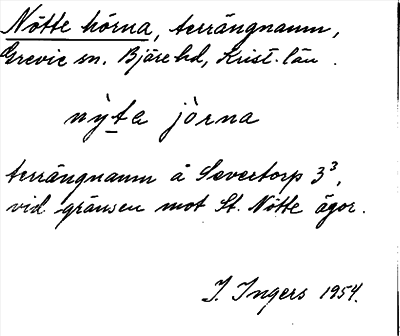 Nötte hörna, terrängnamn,
Grevie sn. Bjäre hd, Krist. län.
nỳta jò̀rna
terrängnamn å Severtorp 3³,
vid gränsen mot St. Nötte ägor.
I. Ingers 1954.